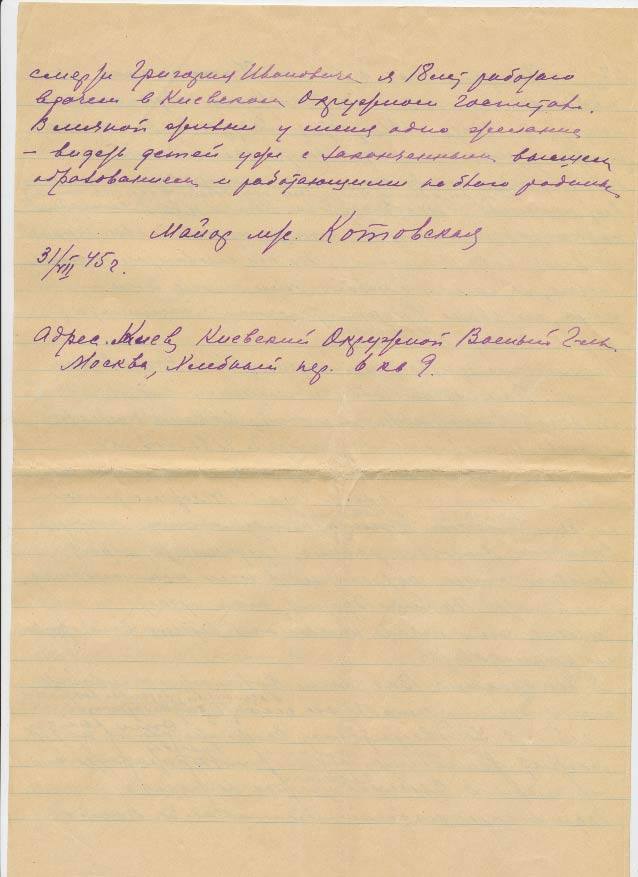 смерти Григория Ивановича я 18 лет работаю
врачем в Киевском Окружном Госпитале.
В личной жизни у меня одно желание
– видеть детей уже с законченным высшем
образованием и работающими на благо родины
Майор м/с. Котовская
31/VII 45 г.
Адрес. Киев Киевский Окружной Военый Г-ль.
Москва, Хлебный пер. 6 кв 9.